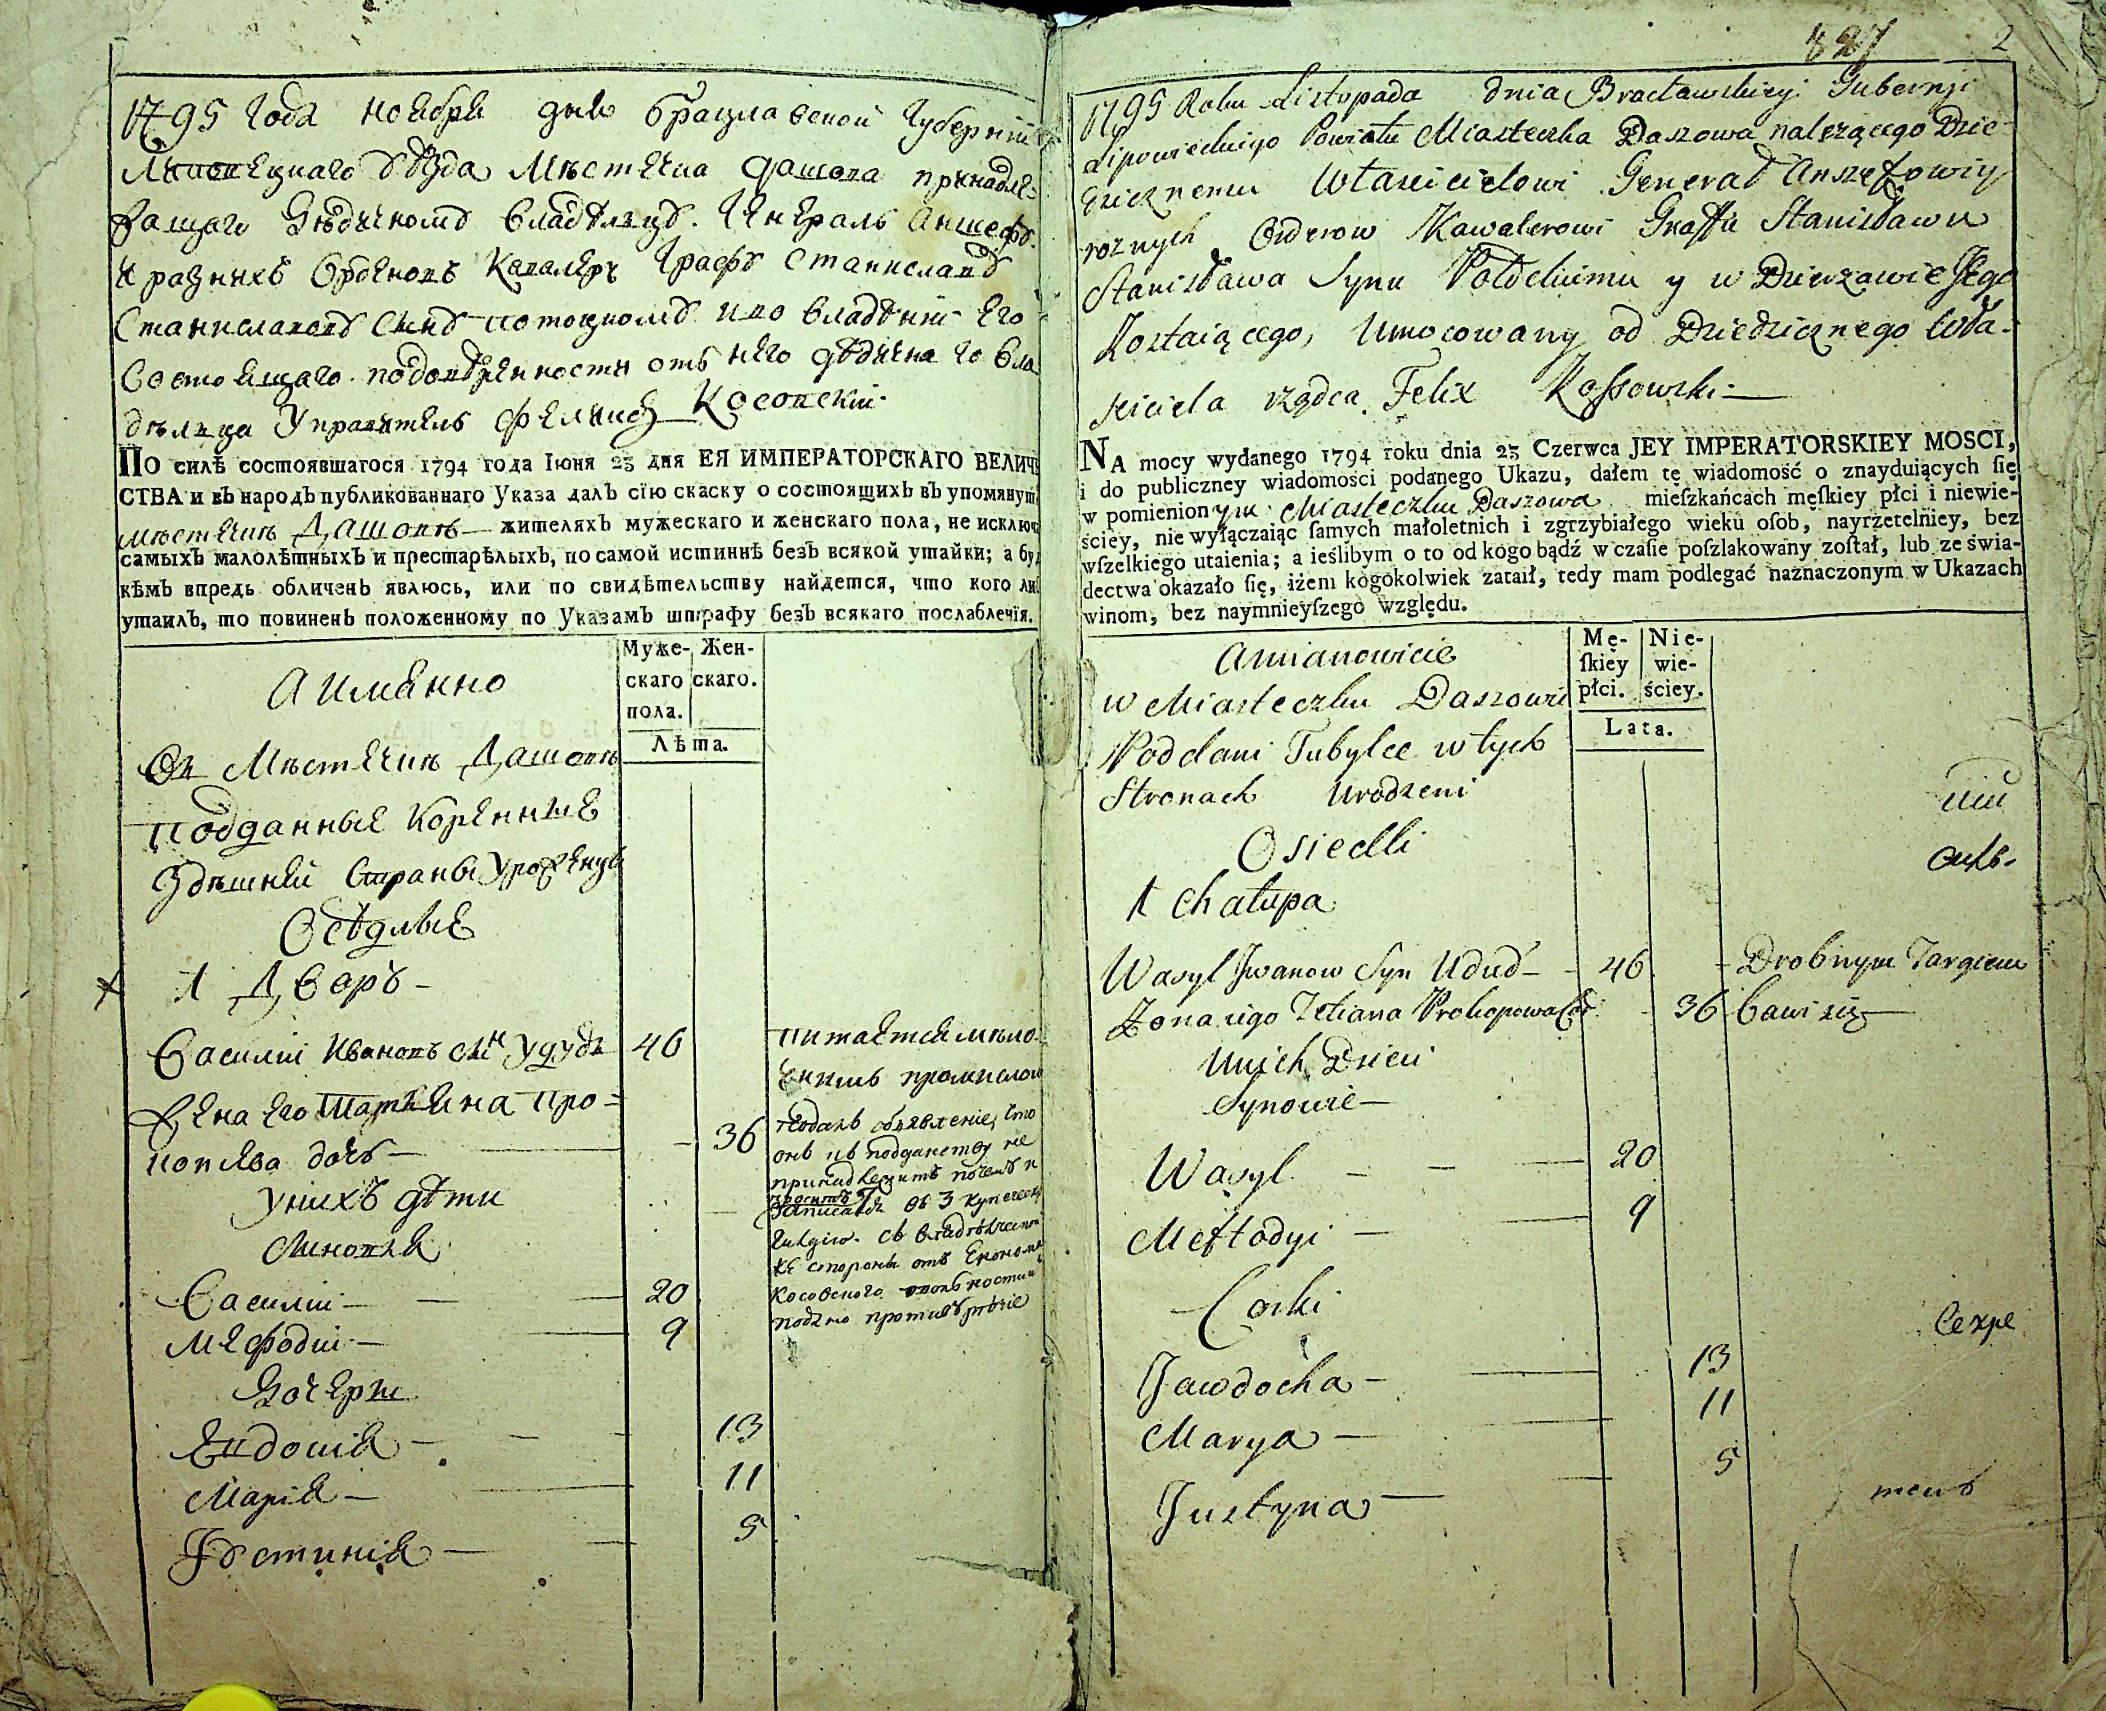 1795 Года ноября дня Брацлавской Губерніи
Липовецкаго Уѣзда Мѣстечка Дашова принадле-
жащаго Дѣдичному Владѣльцу Генералъ Аншефу
и разныхъ Орденовъ Кавалеру Графу Станиславу
Станиславову сыну Потоцкому и во владѣніи Его
Состоящаго подовѣренности отъ него дѣдичнаго Вла
дѣльца Управитель Феликсъ Косовскій
ПО силѣ состоявшагося 1794 года Іюня 23 дня ЕЯ ИМПЕРАТОРСКАГО ВЕЛИЧЕ
СТВА и въ народъ публикованнаго Указа далъ сїю скаску о состоящихъ въ упомянут
мѣстечкѣ Дашовѣ жителяхъ мужескаго и женскаго пола, не исключ
самыхъ малолѣтныхъ и престарѣлыхъ, по самой истиннѣ безъ всякой утайки; а бу
кѣмъ впредь обличенъ явлюсь, или по свидѣтельству найдется, что кого ли
утаилъ, то повиненъ положенному по Указамъ штрафу безъ всякаго послабленїя.
Муже- Жен-
скаго скаго.
пола.
Лѣта.
А имянно
Въ Мѣстечкѣ Дашовѣ
Подданные Коренные
Здѣшней Страны Уроженцы
Осѣдлые
1 Дворъ
Василій Ивановъ сынъ Удудъ 46 питается мѣло-
чнимъ промисломъ
Жена его Татіяна Про-
копіева дочь 36
подалъ объявленіе, что
онъ въ подданству не
принадлежитъ почему и
проситъ
записатся въ 3 купеческ
гилдію. съ владѣлческо
же стороны отъ Економа
Косовского
подано противъ рѣчіе
У нихъ дѣти
Синовья
Василій 20
Мефодій 9
Дочери
Евдокія 13
Марія 11
Густинія 5
827 2
1795 Roku Listopada dnia Bracławskiey Gubernji
Lipowieckiego Powiatu Miasteczka Daszowa należącego Dzie-
dzicznemu Włascicielowi Generał Anszefowi y
roznych Orderow Kawalerowi Graffu Stanisławu
Stanisława Synu Potockiemu y w Dzierzawie Jego
Zostaiącego, Umocowany od Dziedzicznego Wła-
sciciela rządca Felix Kossowski
NA mocy wydanego 1794 roku dnia 23 Czerwca JEY IMPERATORSKIEY MOSCI,
i do publiczney wiadomości podanego Ukazu, dałem tę wiadomość o znayduiących ſię
w pomienionym Miasteczku Daszowa mieſzkańcach męſkiey płci i niewie-
ściey, nie wyłączaiąc ſamych małoletnich i zgrzybiałego wieku oſob, nayrzetelniey, bez
wſzelkiego utaienia; a ieślibym o to od kogo bądź w czaſie poſzlakowany zoſtał, lub ze świa-
dectwa okazało się, iżem kogokolwiek zataił, tedy mam podlegać naznaczonym w Ukazach
winom, bez naymnieyſzego względu.
Mę- Nie-
ſkiey wie-
płci. ściey.
Lata.
Amianowicie
w Miasteczku Daszowie
Poddani Tubylce w tych
Stronach Urodzeni
Osiedli
1 Chałupa
Wasyl Jwanow Syn Udud 46 Drobnym Targiem
Zona iego Tetiana Prokopowa Cor: 36 bawi się
U nich Dzieci
Synowie
Wasyl 20
Meftodyi 9
Corki
Секре
Jawdocha 13
Marya 11
Justyna 5